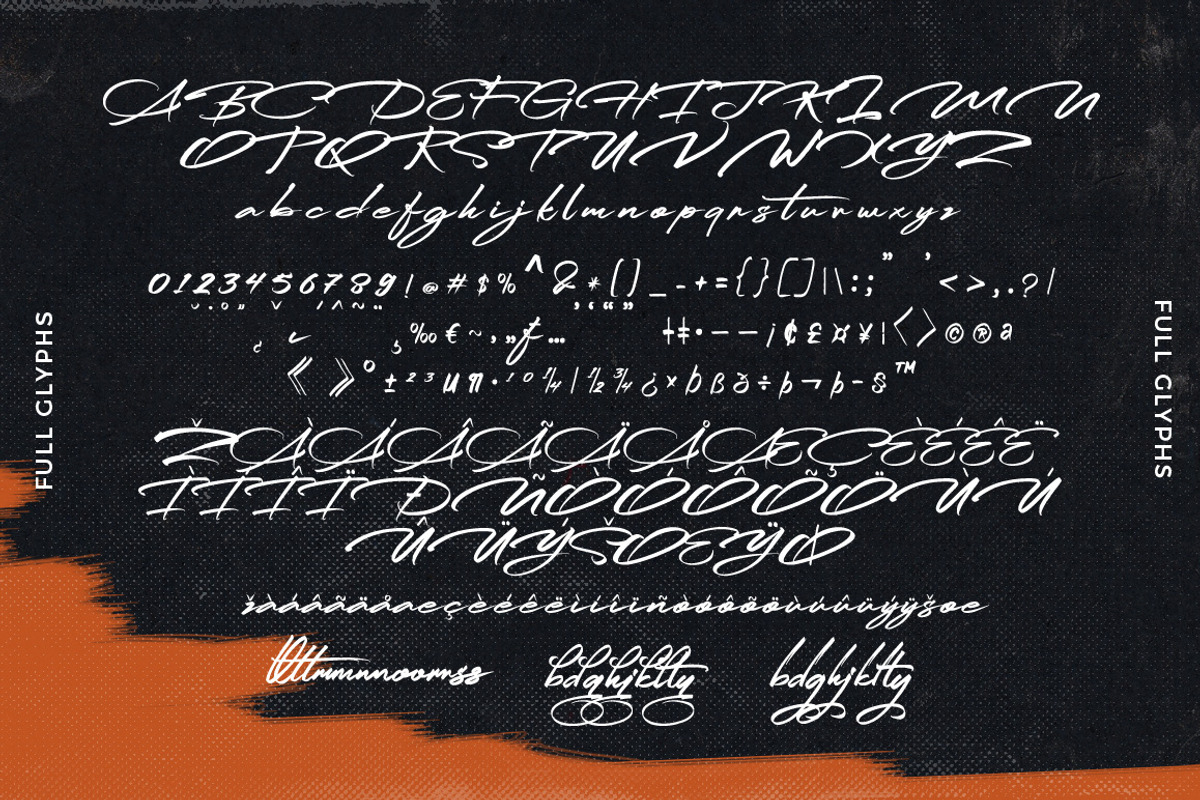 A B C D E F G H I J K L M N
O P Q R S T U V W X Y Z
a b c d e f g h i j k l m n o p q r s t u r w x y z
0 1 2 3 4 5 6 7 8 9 ! @ # $ % ^ & * ( ) _ - + = { } [ ] | \ : ; " ' < > , . ? /
‰ € ~ ‚ „ ƒ … † ‡ • – — ¡ ¢ £ ¤ ¥ ¦ ‹ › © ® ª
« » ° ± ² ³ µ ¶ · ¹ º ¼ | ½ ¾ ¿ × Þ ß ð ÷ þ ¬ þ - § ™
Ž À Á Â Ã Ä Å Æ Ç È É Ê Ë
Ì Í Î Ï Ð Ñ Ò Ó Ô Õ Ö Ù Ú
Û Ü Ý Š Œ Ÿ Ø
ž à á â ã ä å æ ç è é ê ë ì í î ï ñ ò ó ô õ ö ù ú û ü ý ÿ š œ
bdghjklty
FULL GLYPHS
FULL GLYPHS